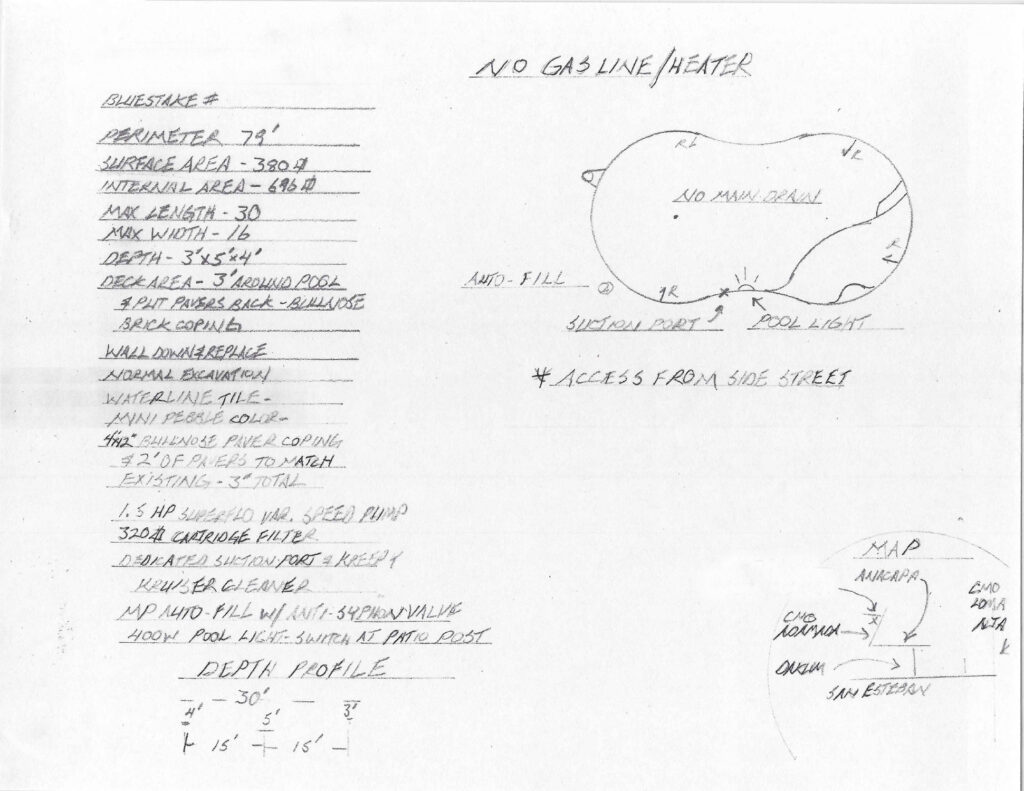 NO GAS LINE/HEATER
BLUESTAKE #
PERIMETER 79'
SURFACE AREA - 380 ⏍
INTERNAL AREA - 696 ⏍
MAX LENGTH - 30
MAX WIDTH - 16
DEPTH - 3'X5'X4'
DECK AREA - 3' AROUND POOL
& PUT PAVERS BACK - BULLNOSE
BRICK COPING
WALL DOWN & REPLACE
NORMAL EXCAVATION
WATERLINE TILE -
MINI PEBBLE COLOR -
BULLNOSE PAVER COPING
& 2' OF PAVERS TO MATCH
EXISTING - 3' TOTAL
1.5 HP SUPERFLO VAR. SPEED PUMP
320 ⏍ CARTRIDGE FILTER
DEDICATED SUCTION PORT & KREEPY
KRUISER CLEANER
MP AUTO-FILL W/ ANTI-SYPHON VALVE
400W POOL LIGHT - SWITCH AT PATIO POST
DEPTH PROFILE
30'
4' 5' 3'
15' 15'
R
R
NO MAIN DRAIN
R
AUTO-FILL
R
SUCTION PORT POOL LIGHT
* ACCESS FROM SIDE STREET
MAP
ANACAPA
CMO
LOMA
ALTA
CMO
X
SAN ESTEBAN